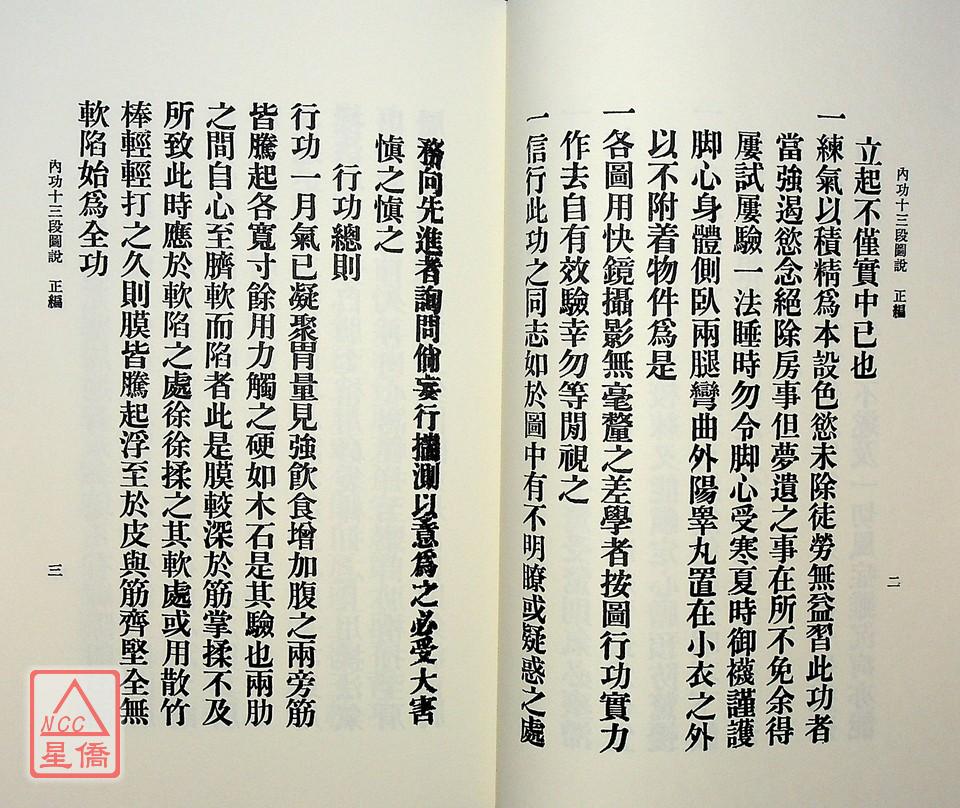 內功十三段圖說 正編
立起不僅實中已也
一練氣以積精為本設色慾未除徒勞無益習此功者
當強遏慾念絕除房事但夢遺之事在所不免余得
屢試屢驗一法睡時勿令脚心受寒夏時御襪謹護
脚心身體側臥兩腿彎曲外陽睾丸置在小衣之外
以不附着物件為是
一各圖用快鏡攝影無毫釐之差學者按圖行功實力
作去自有效驗幸勿等閒視之
一信行此功之同志如於圖中有不明瞭或疑惑之處
二
務向先進者詢問倘妄行揣測以意為之必受大害
慎之慎之
行功總則
行功一月氣已凝聚胃量見強飲食增加腹之兩旁筋
皆騰起各寬寸餘用力觸之硬如木石是其驗也兩肋
之間自心至臍軟而陷者此是膜較深於筋掌揉不及
所致此時應於軟陷之處徐徐揉之其軟處或用散竹
棒輕輕打之久則膜皆騰起浮至於皮與筋齊堅全無
軟陷始為全功
內功十三段圖說 正編
三
NCC
星僑